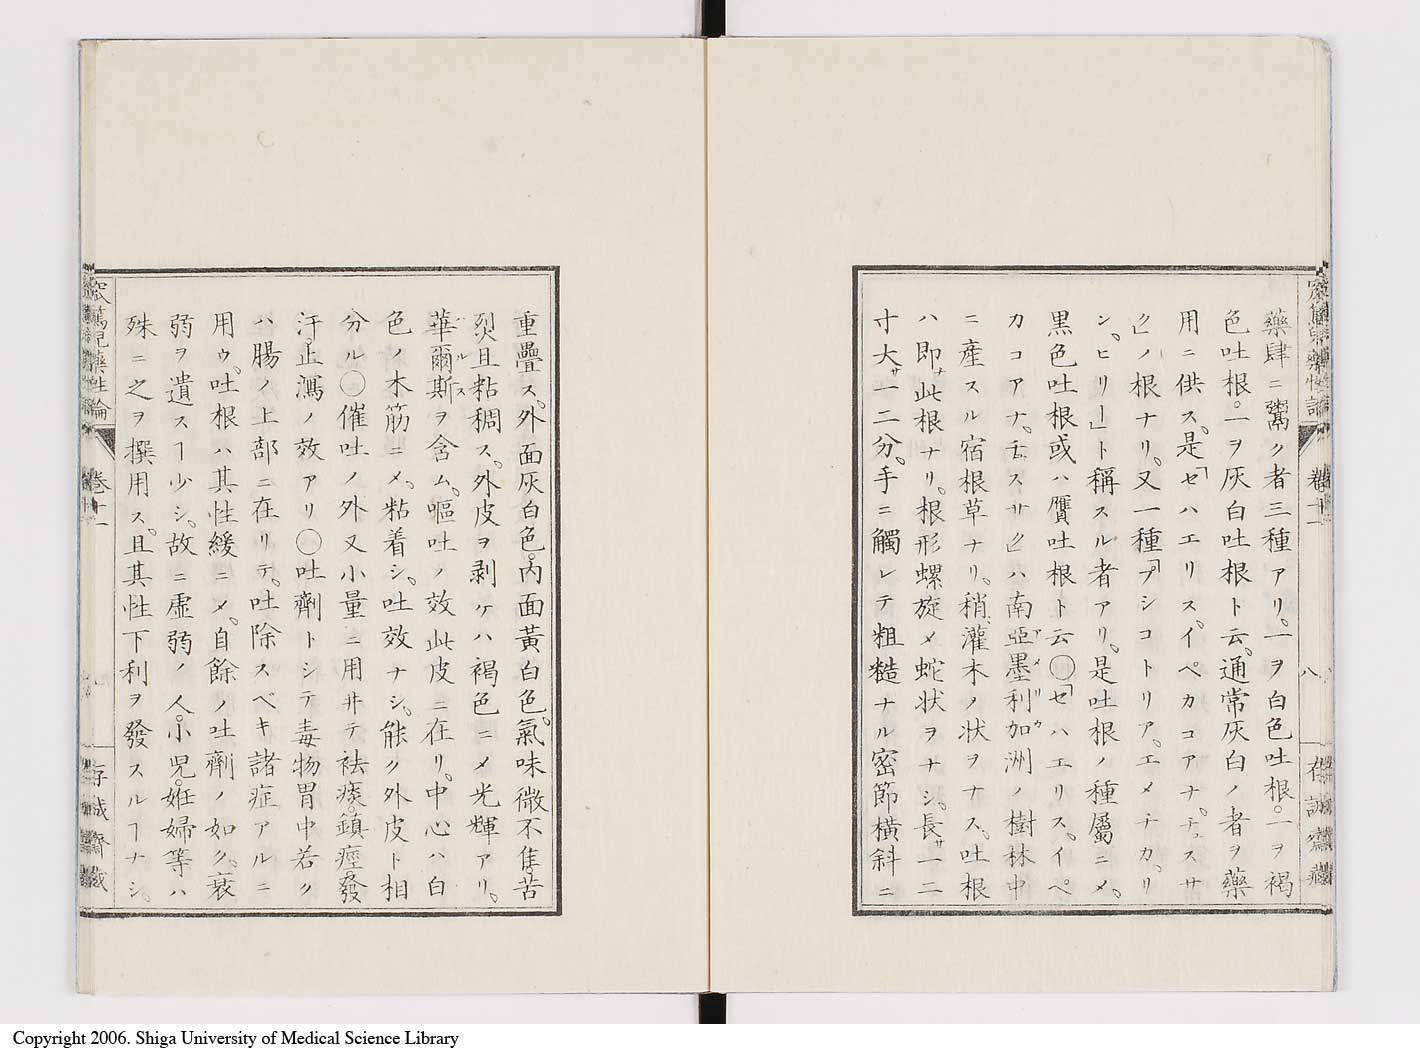 藥肆ニ鬻ク者三種アリ。一ヲ白色吐根。一ヲ褐
色吐根。一ヲ灰白吐根ト云。通常灰白ノ者ヲ藥
用ニ供ス。是「セハエリス。イペカコアナ。チスサ
ヒ」ノ根ナリ。又一種「プシコトリア。エメチカ。リ
シ。ヒリー」ト稱スル者アリ。是吐根ノ種屬ニメ。
黒色吐根或ハ贋吐根ト云○「セハエリス。イペ
カコアナ。チスサヒ」ハ南亞墨利加洲ノ樹林中
ニ産スル宿根草ナリ。稍灌木ノ状ヲナス。吐根
ハ即チ此根ナリ。根形螺旋メ蛇状ヲナシ。長サ一二
寸大サ一二分。手ニ觸レテ粗糙ナル密節横斜ニ
重疊ス。外面灰白色。内面黄白色。氣味微不佳苦
烈且粘稠ス。外皮ヲ剥ケハ褐色ニメ光輝アリ。
華爾斯ヲ含ム。嘔吐ノ效此皮ニ在リ。中心ハ白
色ノ木筋ニメ。粘着シ。吐效ナシ。能ク外皮ト相
分ル○催吐ノ外又小量ニ用井テ袪痰。鎮痙。發
汗。止瀉ノ效アリ○吐劑トシテ毒物胃中若ク
ハ腸ノ上部ニ在リテ。吐除スベキ諸症アルニ
用ウ。吐根ハ其性緩ニメ。自餘ノ吐劑ノ如ク。衰
弱ヲ遺スヿ少シ。故ニ虚弱ノ人。小兒。姙婦等ハ
殊ニ之ヲ撰用ス。且其性下利ヲ發スルヿナシ。
窊篤兒藥性論
卷十一
八
存誠齋藏
Copyright 2006. Shiga University of Medical Science Library